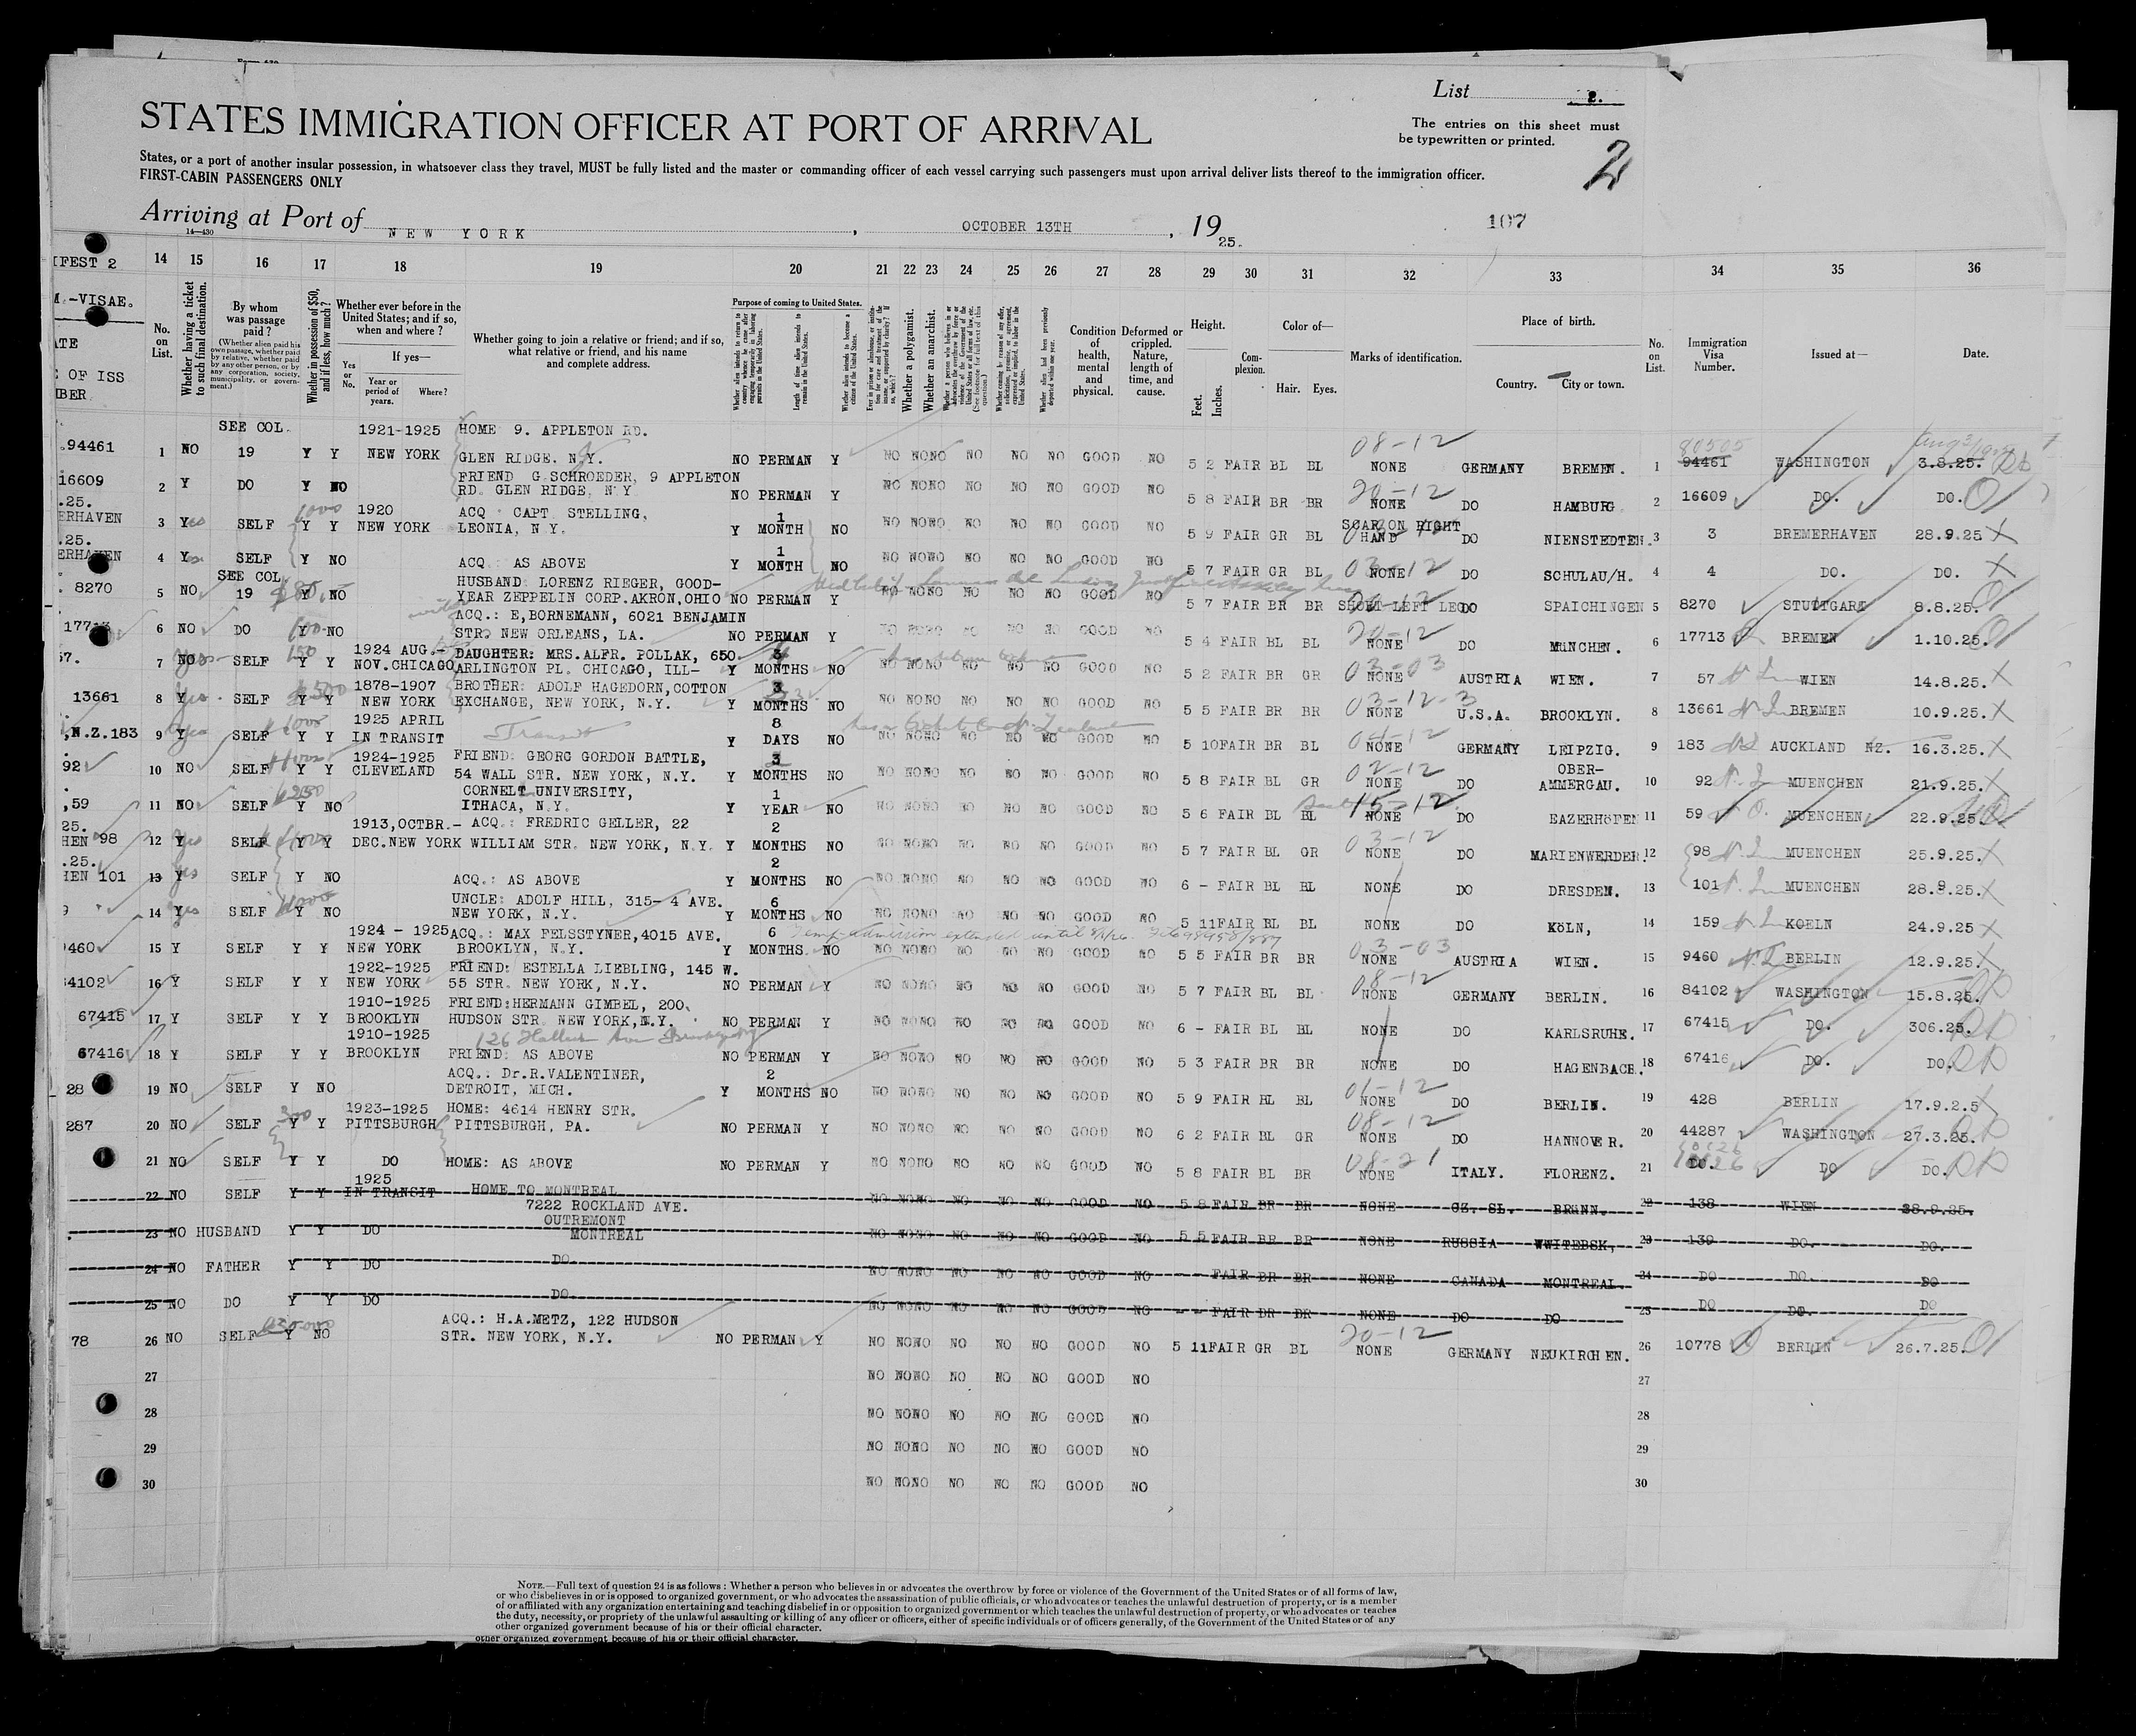 List 2.
STATES IMMIGRATION OFFICER AT PORT OF ARRIVAL
The entries on this sheet must
be typewritten or printed.
2
States, or a port of another insular possession, in whatsoever class they travel, MUST be fully listed and the master or commanding officer of each vessel carrying such passengers must upon arrival deliver lists thereof to the immigration officer.
FIRST-CABIN PASSENGERS ONLY
Arriving at Port of NEW YORK, OCTOBER 13TH, 1925.
107
14—430
IFEST 2 14 15 16 17 18 19 20 21 22 23 24 25 26 27 28 29 30 31 32 33 34 35 36
M.-VISAE.
No. on List.
Whether having a ticket to such final destination.
By whom was passage paid?
(Whether alien paid his own passage, whether paid by relative, whether paid by any other person, or by any corporation, society, municipality, or government.)
Whether in possession of $50, and if less, how much?
Whether ever before in the United States; and if so, when and where?
Yes or No.
If yes—
Year or period of years.
Where?
Whether going to join a relative or friend; and if so, what relative or friend, and his name and complete address.
Purpose of coming to United States.
Whether alien intends to return to country whence he came after engaging temporarily in laboring pursuits in the United States.
Length of time alien intends to remain in the United States.
Whether alien intends to become a citizen of the United States.
Whether a polygamist.
Whether an anarchist.
Condition of health, mental and physical.
Deformed or crippled. Nature, length of time, and cause.
Height.
Feet.
Inches.
Complexion.
Color of—
Hair. Eyes.
Marks of identification.
Place of birth.
Country. City or town.
No. on List.
Immigration Visa Number.
Issued at—
Date.
SEE COL. 1921-1925 HOME 9. APPLETON RD.
94461 1 NO 19 Y Y NEW YORK GLEN RIDGE. N.Y. NO PERMAN Y NO NONO NO NO NO GOOD NO 5 2 FAIR BL BL NONE GERMANY BREMEN. 1 94461 WASHINGTON 3.8.25.
08-12 80505
FRIEND G.SCHROEDER, 9 APPLETON
16609 2 Y DO Y NO RD. GLEN RIDGE, N Y NO PERMAN Y NO NONO NO NO NO GOOD NO 5 8 FAIR BR BR NONE DO HAMBURG 2 16609 DO. DO.
20-12
.25. 1000 1920 ACQ CAPT STELLING, 1
ERHAVEN 3 Yes SELF Y Y NEW YORK LEONIA, N.Y. Y MONTH NO NO NONO NO NO NO GOOD NO 5 9 FAIR GR BL SCAR ON RIGHT HAND DO NIENSTEDTEN. 3 3 BREMERHAVEN 28.9.25
.25. 1
ERHAVEN 4 Yes SELF Y NO ACQ : AS ABOVE Y MONTH NO NO NONO NO NO NO GOOD NO 5 7 FAIR GR BL NONE DO SCHULAU/H. 4 4 DO. DO.
03-12
SEE COL. HUSBAND: LORENZ RIEGER, GOOD-
8270 5 NO 19 Y NO YEAR ZEPPELIN CORP.AKRON,OHIO NO PERMAN Y NO NONO NO NO NO GOOD NO 5 7 FAIR BR BR SHORT LEFT LEG DO SPAICHINGEN 5 8270 STUTTGART 8.8.25.
ACQ.: E,BORNEMANN, 6021 BENJAMIN
17713 6 NO DO Y NO STR. NEW ORLEANS, LA. NO PERMAN Y NO NONO NO NO NO GOOD NO 5 4 FAIR BL BL NONE DO MüNCHEN. 6 17713 BREMEN 1.10.25.
20-12
150 1924 AUG.- DAUGHTER: MRS.ALFR. POLLAK, 650. 3
57. 7 NO Yes SELF Y Y NOV.CHICAGO ARLINGTON PL. CHICAGO, ILL- Y MONTHS NO NO NONO NO NO NO GOOD NO 5 2 FAIR BR GR NONE AUSTRIA WIEN. 7 57 WIEN 14.8.25.
03-03
1878-1907 BROTHER: ADOLF HAGEDORN,COTTON 3
13661 8 Yes SELF Y Y NEW YORK EXCHANGE, NEW YORK, N.Y. Y MONTHS NO NO NONO NO NO NO GOOD NO 5 5 FAIR BR BR NONE U.S.A. BROOKLYN. 8 13661 BREMEN 10.9.25.
03-12-3
1925 APRIL 8
,N.Z.183 9 Yes SELF Y Y IN TRANSIT Transit Y DAYS NO NO NONO NO NO NO GOOD NO 5 10FAIR BR BL NONE GERMANY LEIPZIG. 9 183 AUCKLAND NZ. 16.3.25.
1924-1925 FRIEND: GEORG GORDON BATTLE, 3 02-12 OBER-
92 10 NO SELF Y Y CLEVELAND 54 WALL STR. NEW YORK, N.Y. Y MONTHS NO NO NONO NO NO NO GOOD NO 5 8 FAIR BL GR NONE DO AMMERGAU. 10 92 MUENCHEN 21.9.25.
CORNELT UNIVERSITY, 1
,59 11 NO SELF Y NO ITHACA, N.Y. Y YEAR NO NO NONO NO NO NO GOOD NO 5 6 FAIR BL BL NONE DO EAZERHöFEN 11 59 MUENCHEN 22.9.25.
15-12
25. 1913,OCTBR.- ACQ.: FREDRIC GELLER, 22 2
HEN 98 12 Yes SELF Y Y DEC.NEW YORK WILLIAM STR. NEW YORK, N.Y. Y MONTHS NO NO NONO NO NO NO GOOD NO 5 7 FAIR BL GR NONE DO MARIENWERDER 12 98 MUENCHEN 25.9.25.
03-12
.25. 2
HEN 101 13 Yes SELF Y NO ACQ.: AS ABOVE Y MONTHS NO NO NONO NO NO NO GOOD NO 6 - FAIR BL BL NONE DO DRESDEN. 13 101 MUENCHEN 28.9.25.
UNCLE: ADOLF HILL, 315- 4 AVE. 6
14 Yes SELF Y NO NEW YORK, N.Y. Y MONTHS NO NO NONO NO NO NO GOOD NO 5 11FAIR BL BL NONE DO KöLN, 14 159 KOELN 24.9.25
1924 - 1925 ACQ.: MAX FELSSTYNER,4015 AVE. 6 Temp admission extended until
9460 15 Y SELF Y Y NEW YORK BROOKLYN, N.Y. Y MONTHS NO NO NONO NO NO NO GOOD NO 5 5 FAIR BR BR NONE AUSTRIA WIEN. 15 9460 BERLIN 12.9.25.
03-03
1922-1925 FRIEND: ESTELLA LIEBLING, 145 W.
84102 16 Y SELF Y Y NEW YORK 55 STR. NEW YORK, N.Y. NO PERMAN Y NO NONO NO NO NO GOOD NO 5 7 FAIR BL BL NONE GERMANY BERLIN. 16 84102 WASHINGTON 15.8.25.
08-12
1910-1925 FRIEND:HERMANN GIMBEL, 200.
67415 17 Y SELF Y Y BROOKLYN HUDSON STR. NEW YORK,N.Y. NO PERMAN Y NO NONO NO NO NO GOOD NO 6 - FAIR BL BL NONE DO KARLSRUHE. 17 67415 DO. 306.25.
1910-1925
67416 18 Y SELF Y Y BROOKLYN FRIEND: AS ABOVE NO PERMAN Y NO NONO NO NO NO GOOD NO 5 3 FAIR BR BR NONE DO HAGENBACH. 18 67416 DO. DO.
ACQ.: Dr.R.VALENTINER, 2
28 19 NO SELF Y NO DETROIT, MICH. Y MONTHS NO NO NONO NO NO NO GOOD NO 5 9 FAIR BL BL NONE DO BERLIN. 19 428 BERLIN 17.9.2.5
01-12
300 1923-1925 HOME: 4614 HENRY STR.
287 20 NO SELF Y Y PITTSBURGH PITTSBURGH, PA. NO PERMAN Y NO NONO NO NO NO GOOD NO 6 2 FAIR BL GR NONE DO HANNOVER. 20 44287 WASHINGTON 27.3.25.
08-12
21 NO SELF Y Y DO HOME: AS ABOVE NO PERMAN Y NO NONO NO NO NO GOOD NO 5 8 FAIR BL BR NONE ITALY. FLORENZ. 21 DO. DO DO.
08-21
1925
22 NO SELF Y Y IN TRANSIT HOME TO MONTREAL NO NONO NO NO NO GOOD NO 5 8 FAIR BR BR NONE CZ. SL. BRüNN. 22 138 WIEN 28.9.25.
7222 ROCKLAND AVE.
OUTREMONT
23 NO HUSBAND Y Y DO MONTREAL NO NONO NO NO NO GOOD NO 5 5 FAIR BR BR NONE RUSSIA WWITEBSK, 23 139 DO. DO.
24 NO FATHER Y Y DO DO. NO NONO NO NO NO GOOD NO - - FAIR BR BR NONE CANADA MONTREAL 24 DO DO. DO
25 NO DO Y Y DO DO. NO NONO NO NO NO GOOD NO - - FAIR BR BR NONE DO DO 25 DO DO. DO
ACQ.: H.A.METZ, 122 HUDSON
78 26 NO SELF Y NO STR. NEW YORK, N.Y. NO PERMAN Y NO NONO NO NO NO GOOD NO 5 11FAIR GR BL NONE GERMANY NEUKIRCHEN. 26 10778 BERLIN 26.7.25.
20-12
27 NO NONO NO NO NO GOOD NO 27
28 NO NONO NO NO NO GOOD NO 28
29 NO NONO NO NO NO GOOD NO 29
30 NO NONO NO NO NO GOOD NO 30
NOTE.—Full text of question 24 is as follows: Whether a person who believes in or advocates the overthrow by force or violence of the Government of the United States or of all forms of law,
or who disbelieves in or is opposed to organized government, or who advocates the assassination of public officials, or who advocates or teaches the unlawful destruction of property, or is a member
of or affiliated with any organization entertaining and teaching disbelief in or opposition to organized government or which teaches the unlawful destruction of property, or who advocates or teaches
the duty, necessity, or propriety of the unlawful assaulting or killing of any officer or officers, either of specific individuals or of officers generally, of the Government of the United States or of any
other organized government because of his or their official character.
other organized government because of his or their official character.